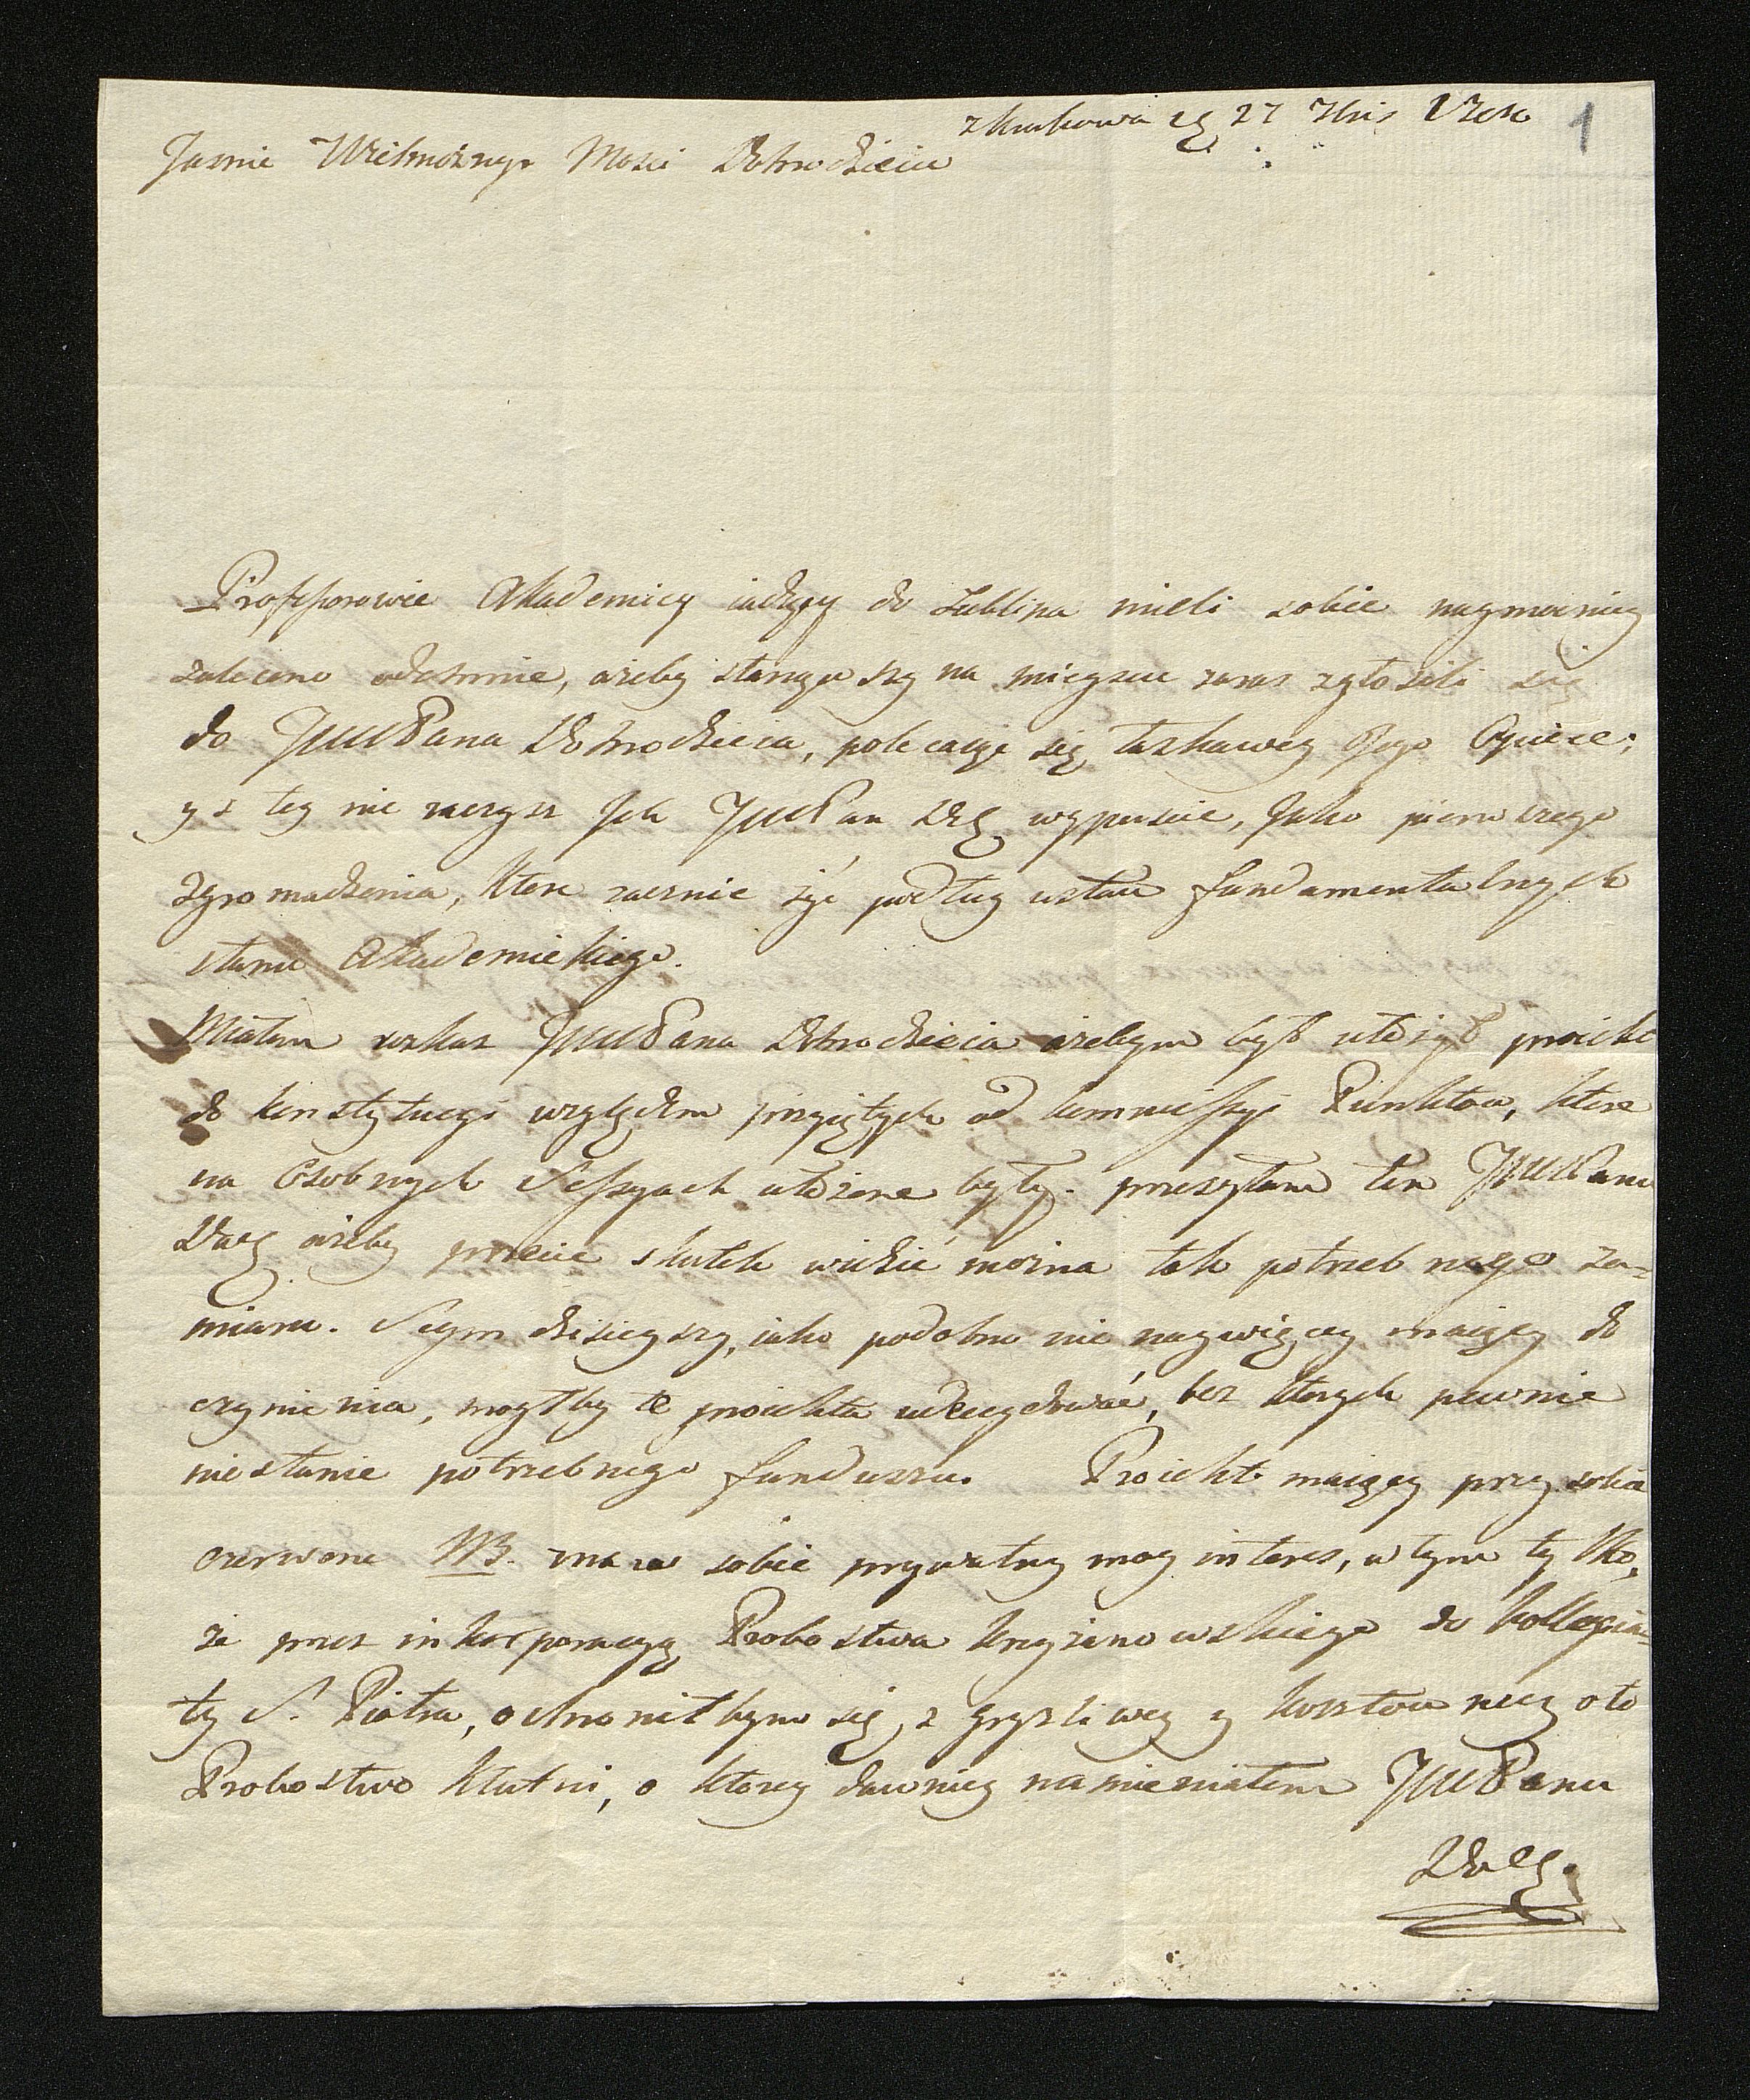 z Krakowa 27 7bris 1
Jasnie Wielmożny Mosci Dobrodzieiu
Professorowie Akademicy iadący do Lublina mieli sobie naymocniey
zalecono odemnie, ażeby stanąwszy na mieyscu zaraz zgłosili się
do JWWPana Dobrodzieia, polecaiąc się łaskawey Jego Opiece;
y z tey nie raczysz Ich JWWPan wypuscic, jako pierwszego
Zgromadzenia, ktore zacznie żyć podług ustaw fundamentalnych
stanu Akademickiego.
Miałem rozkaz JWWPana Dobrodzieia ażebym był ułożył proiekt
do konstytucyi względem przyiętych od kommissyi Punktow, ktore
na Osobnych Sessyach ułożone były. przesyłam ten JWWPanu
ażeby przecie skutek widzić można tak potrzebnego za=
miaru. Seym dzisieyszy, iako podobno nie naywięcey maiący do
czynienia, mogłby te proiekta udecydować, bez ktorych pewnie
niestanie potrzebnego funduszu. Proiekt maiący przy sobie
czerwono NB. ma w sobie prywatny moy interes, w tym tylko,
że przez inkorporacyą Probostwa Krzyżanowskiego do Kollegia=
ty S. Piotra, ochroniłbym się z gryzliwey y kosztowney o to
Probostwo kłutni, o ktorey dawniey namieniałem JWWPanu